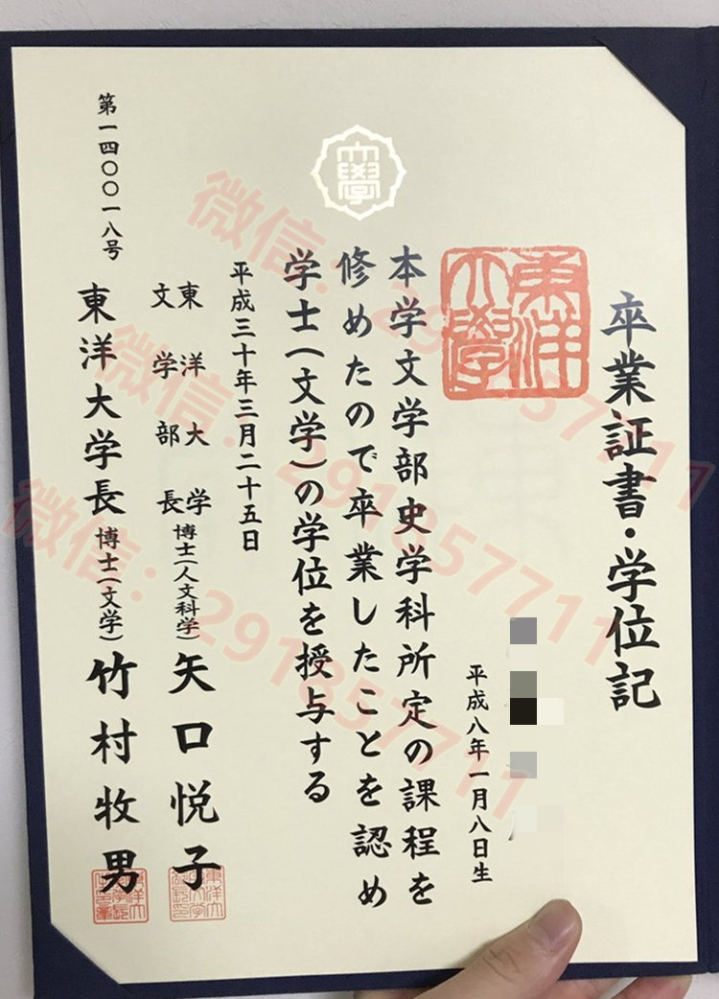 卒業証書・学位記
平成八年一月八日生
東洋
大學
本学文学部史学科所定の課程を
修めたので卒業したことを認め
学士(文学)の学位を授与する
平成三十年三月二十五日
東洋大学
文学部長 博士(人文科学) 矢口悦子
東洋大学長 博士(文学) 竹村牧男
第一四〇〇一八号
大學
微信：291857711
微信：291857711
微信：291857711